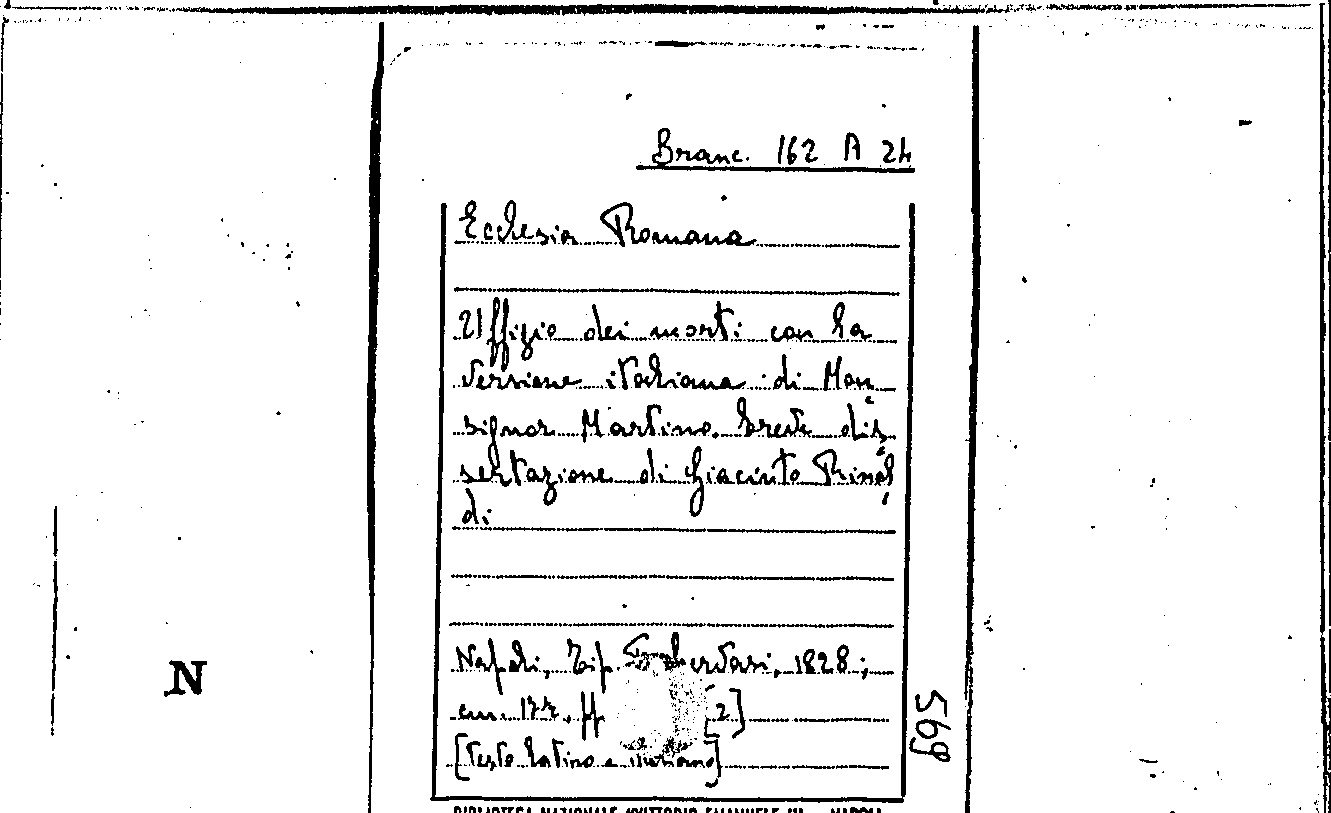 Branc. 162 A 24
Ecclesia Romana
Uffizio dei morti con la
versione italiana di Mon
signor Martino. Breve dis
sertazione di Giacinto Rinal
di
Napoli, Tip. 1828;
cm. 17½, pp [2]
[Testo latino e italiano]
569
N
BIBLIOTECA NAZIONALE «VITTORIO EMANUELE III» - NAPOLI